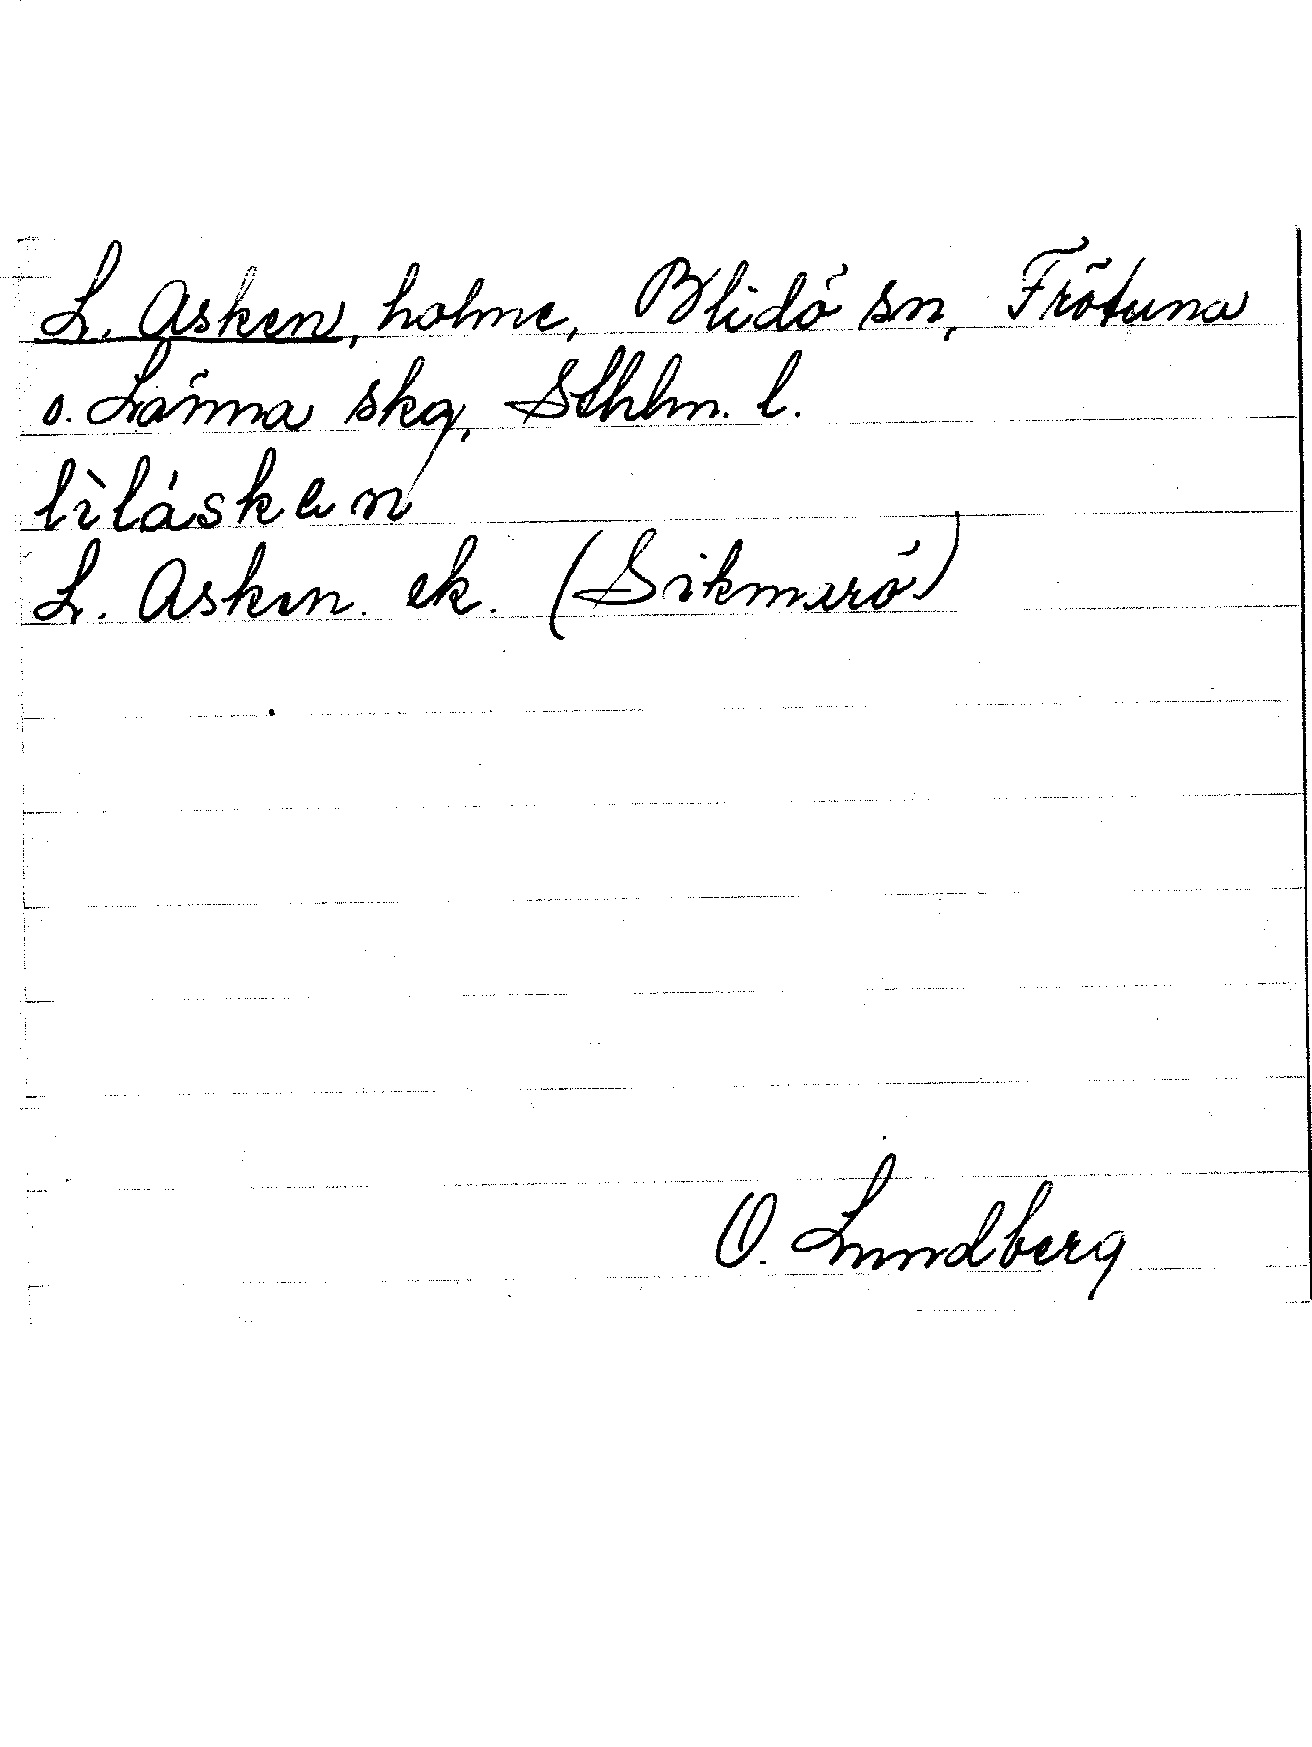 L. Asken, holme, Blidö sn, Frötuna
o. Länna skg, Sthlm. l.
lìlásken
L. Asken. ek. (Sikmarö)
O. Lundberg